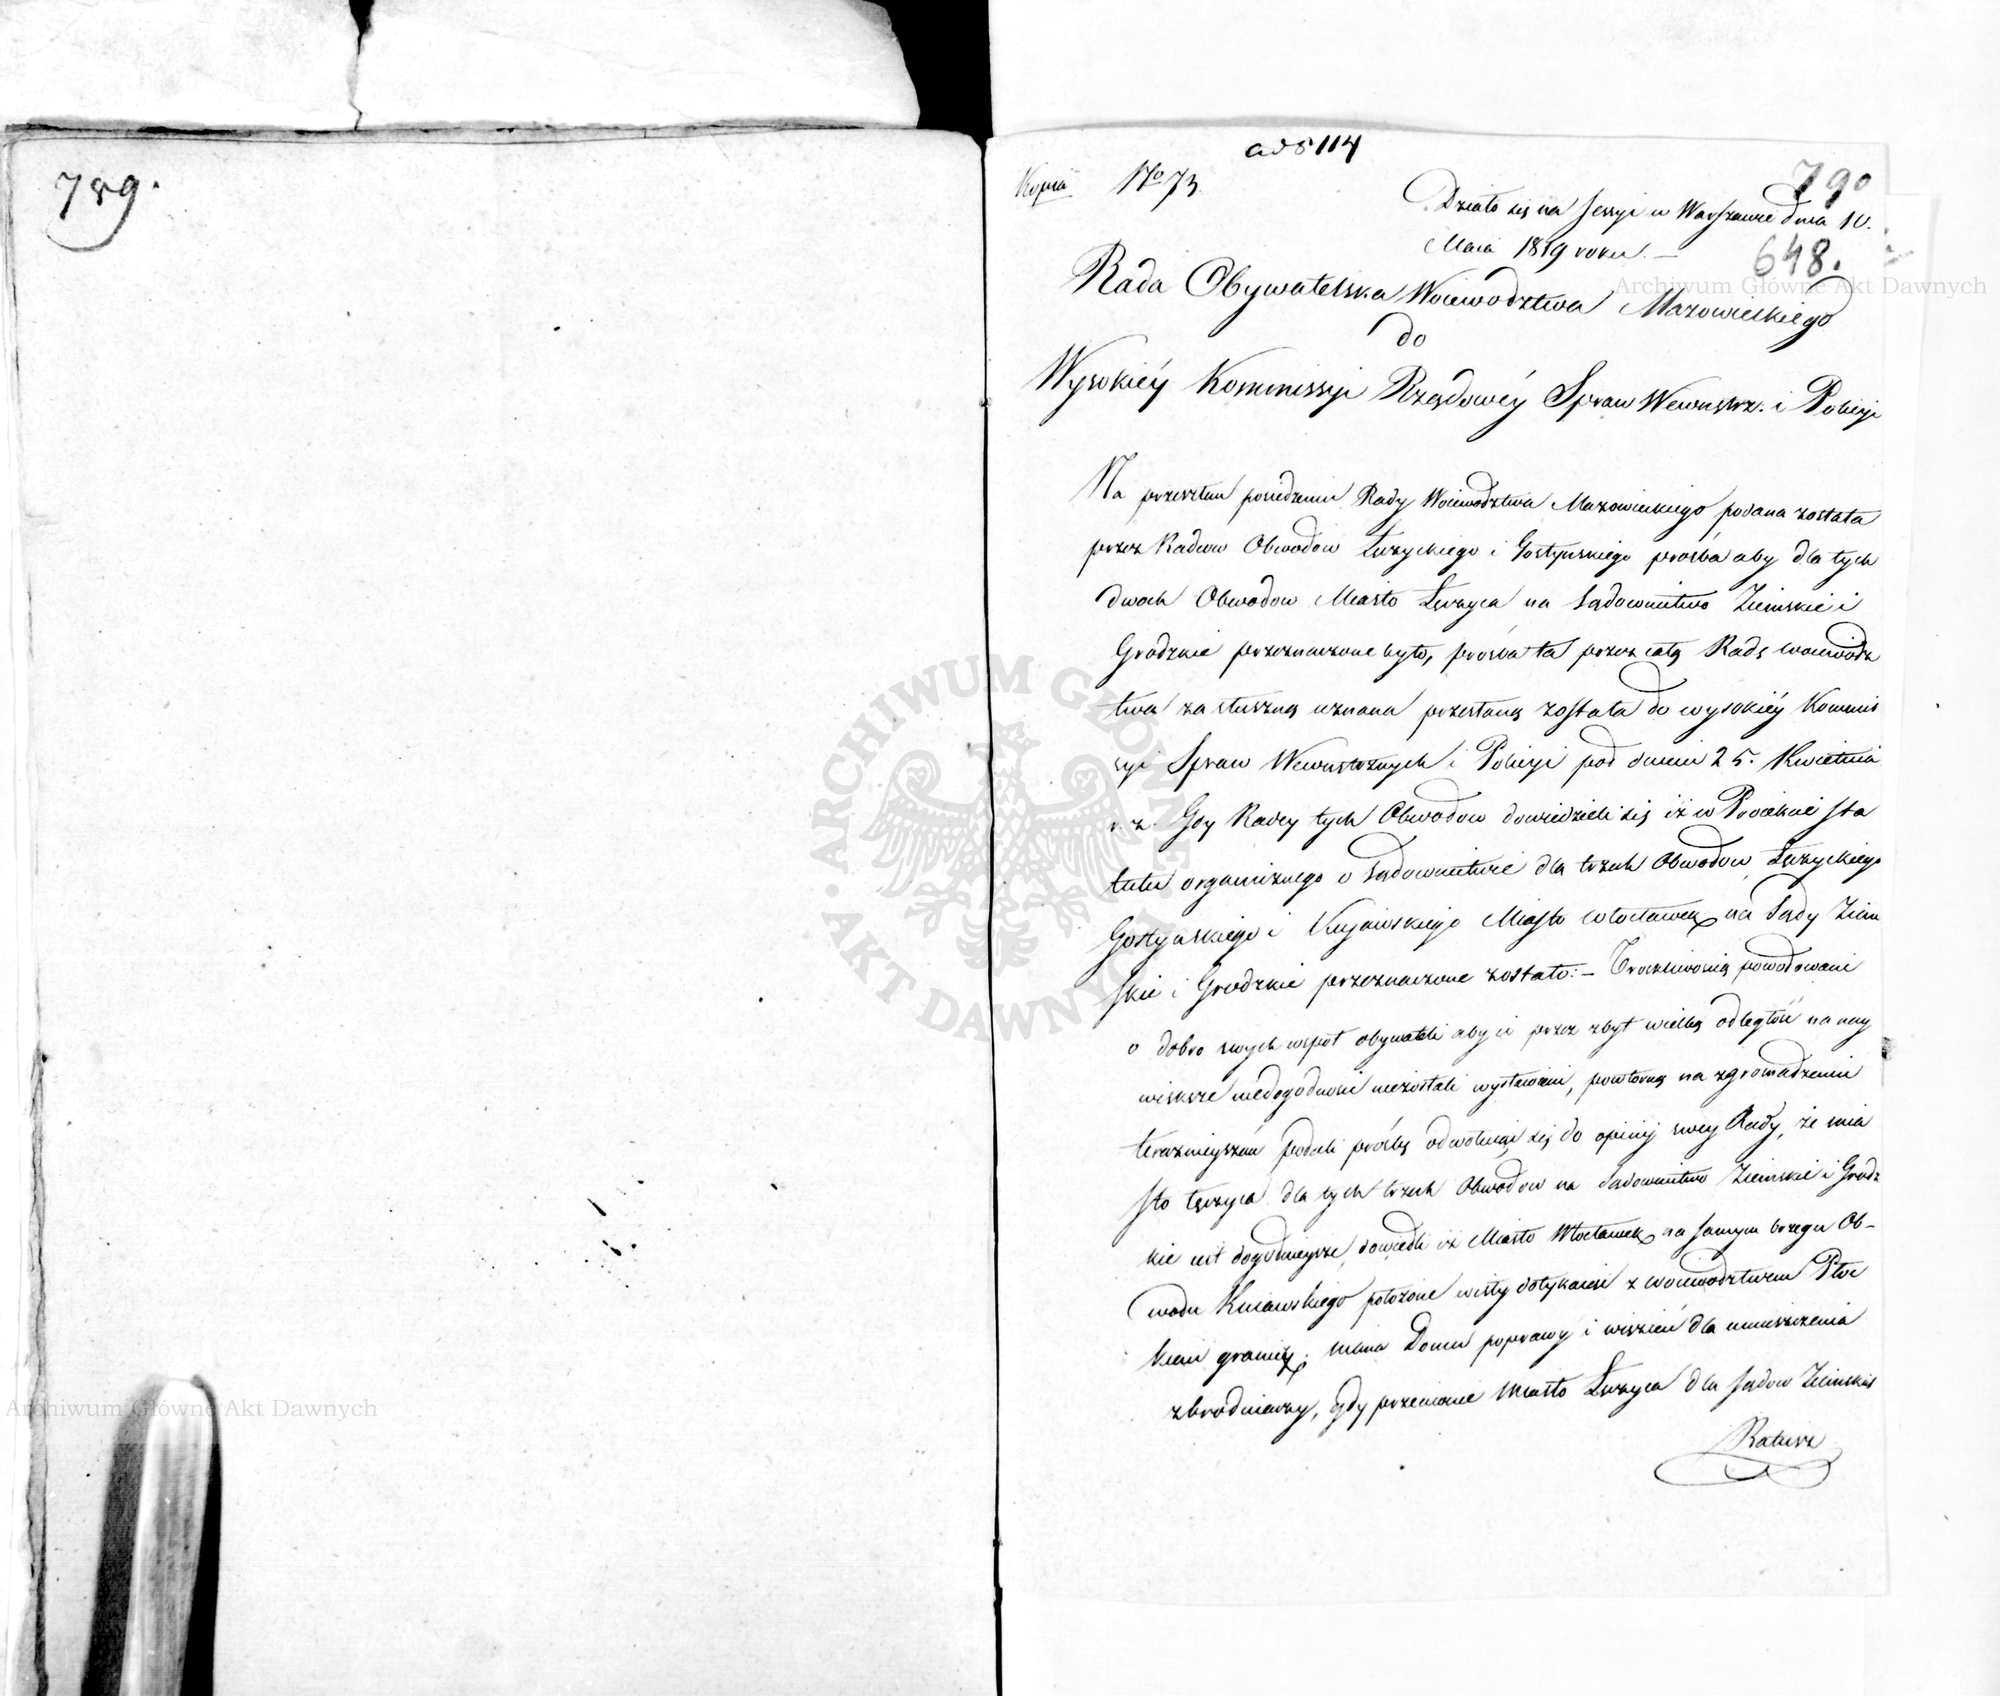 789.
ad 5114
Kopia No 73.
790
Działo się na Sessyi w Warszawie dnia 10.
Maia 1819 roku. —
648.
Rada Obywatelska Woiewodztwa Mazowieckiego
do
Wysokiéy Kommissyi Rządowéy Spraw Wewnętrz. i Policyi
Na przeszłem posiedzeniu Rady Woiewodztwa Mazowieckiego podana została
przez Radców Obwodow Łęczyckiego i Gostyńskiego prośba aby dla tych
dwoch Obwodow Miasto Łęczyca na Sądownictwo Ziemskie i
Grodzkie przeznaczone było, prośba ta przez całą Radę woiewodz
twa za słuszną uznana przesłaną została do wysokiéy Kommis
syi Spraw Wewnętrznych i Policyi pod dniem 25. Kwietnia
r. z. Gdy Radcy tych Obwodow dowiedzieli się iż w Proiekcie sta
tutu organicznego o sądownictwie dla trzech Obwodow Łęczyckiego
Gostyńskiego i Kujawskiego Miasto Włocławek na Sądy Ziem
skie i Grodzkie przeznaczone zostało: — Troskliwością powodowani
o dobro swych wspoł obywateli aby ci przez zbyt wielką odległość na nay
większe niedogodności niezostali wystawieni, powtorną na zgromadzeniu
teraznieyszém podali prośbę odwołując się do opinij swey Rady, że mia
sto Łęczyca dla tych trzech Obwodow na Sądownictwo Ziemskie i Grodz
kie iest dogodnieysze, dowiedli iż Miasto Włocławek na samym brzegu Ob-
wodu Kuiawskiego położone wisły dotykaiące z woiewodztwem Płoc
kiem graniczy; niema Domu poprawy i więzień dla umieszczenia
zbrodniarzy, gdy przeciwnie Miasto Łęczyca dla sądow Ziemskich
Ratusz
Archiwum Główne Akt Dawnych
Archiwum Główne Akt Dawnych
ARCHIWUM GŁÓWNE AKT DAWNYCH